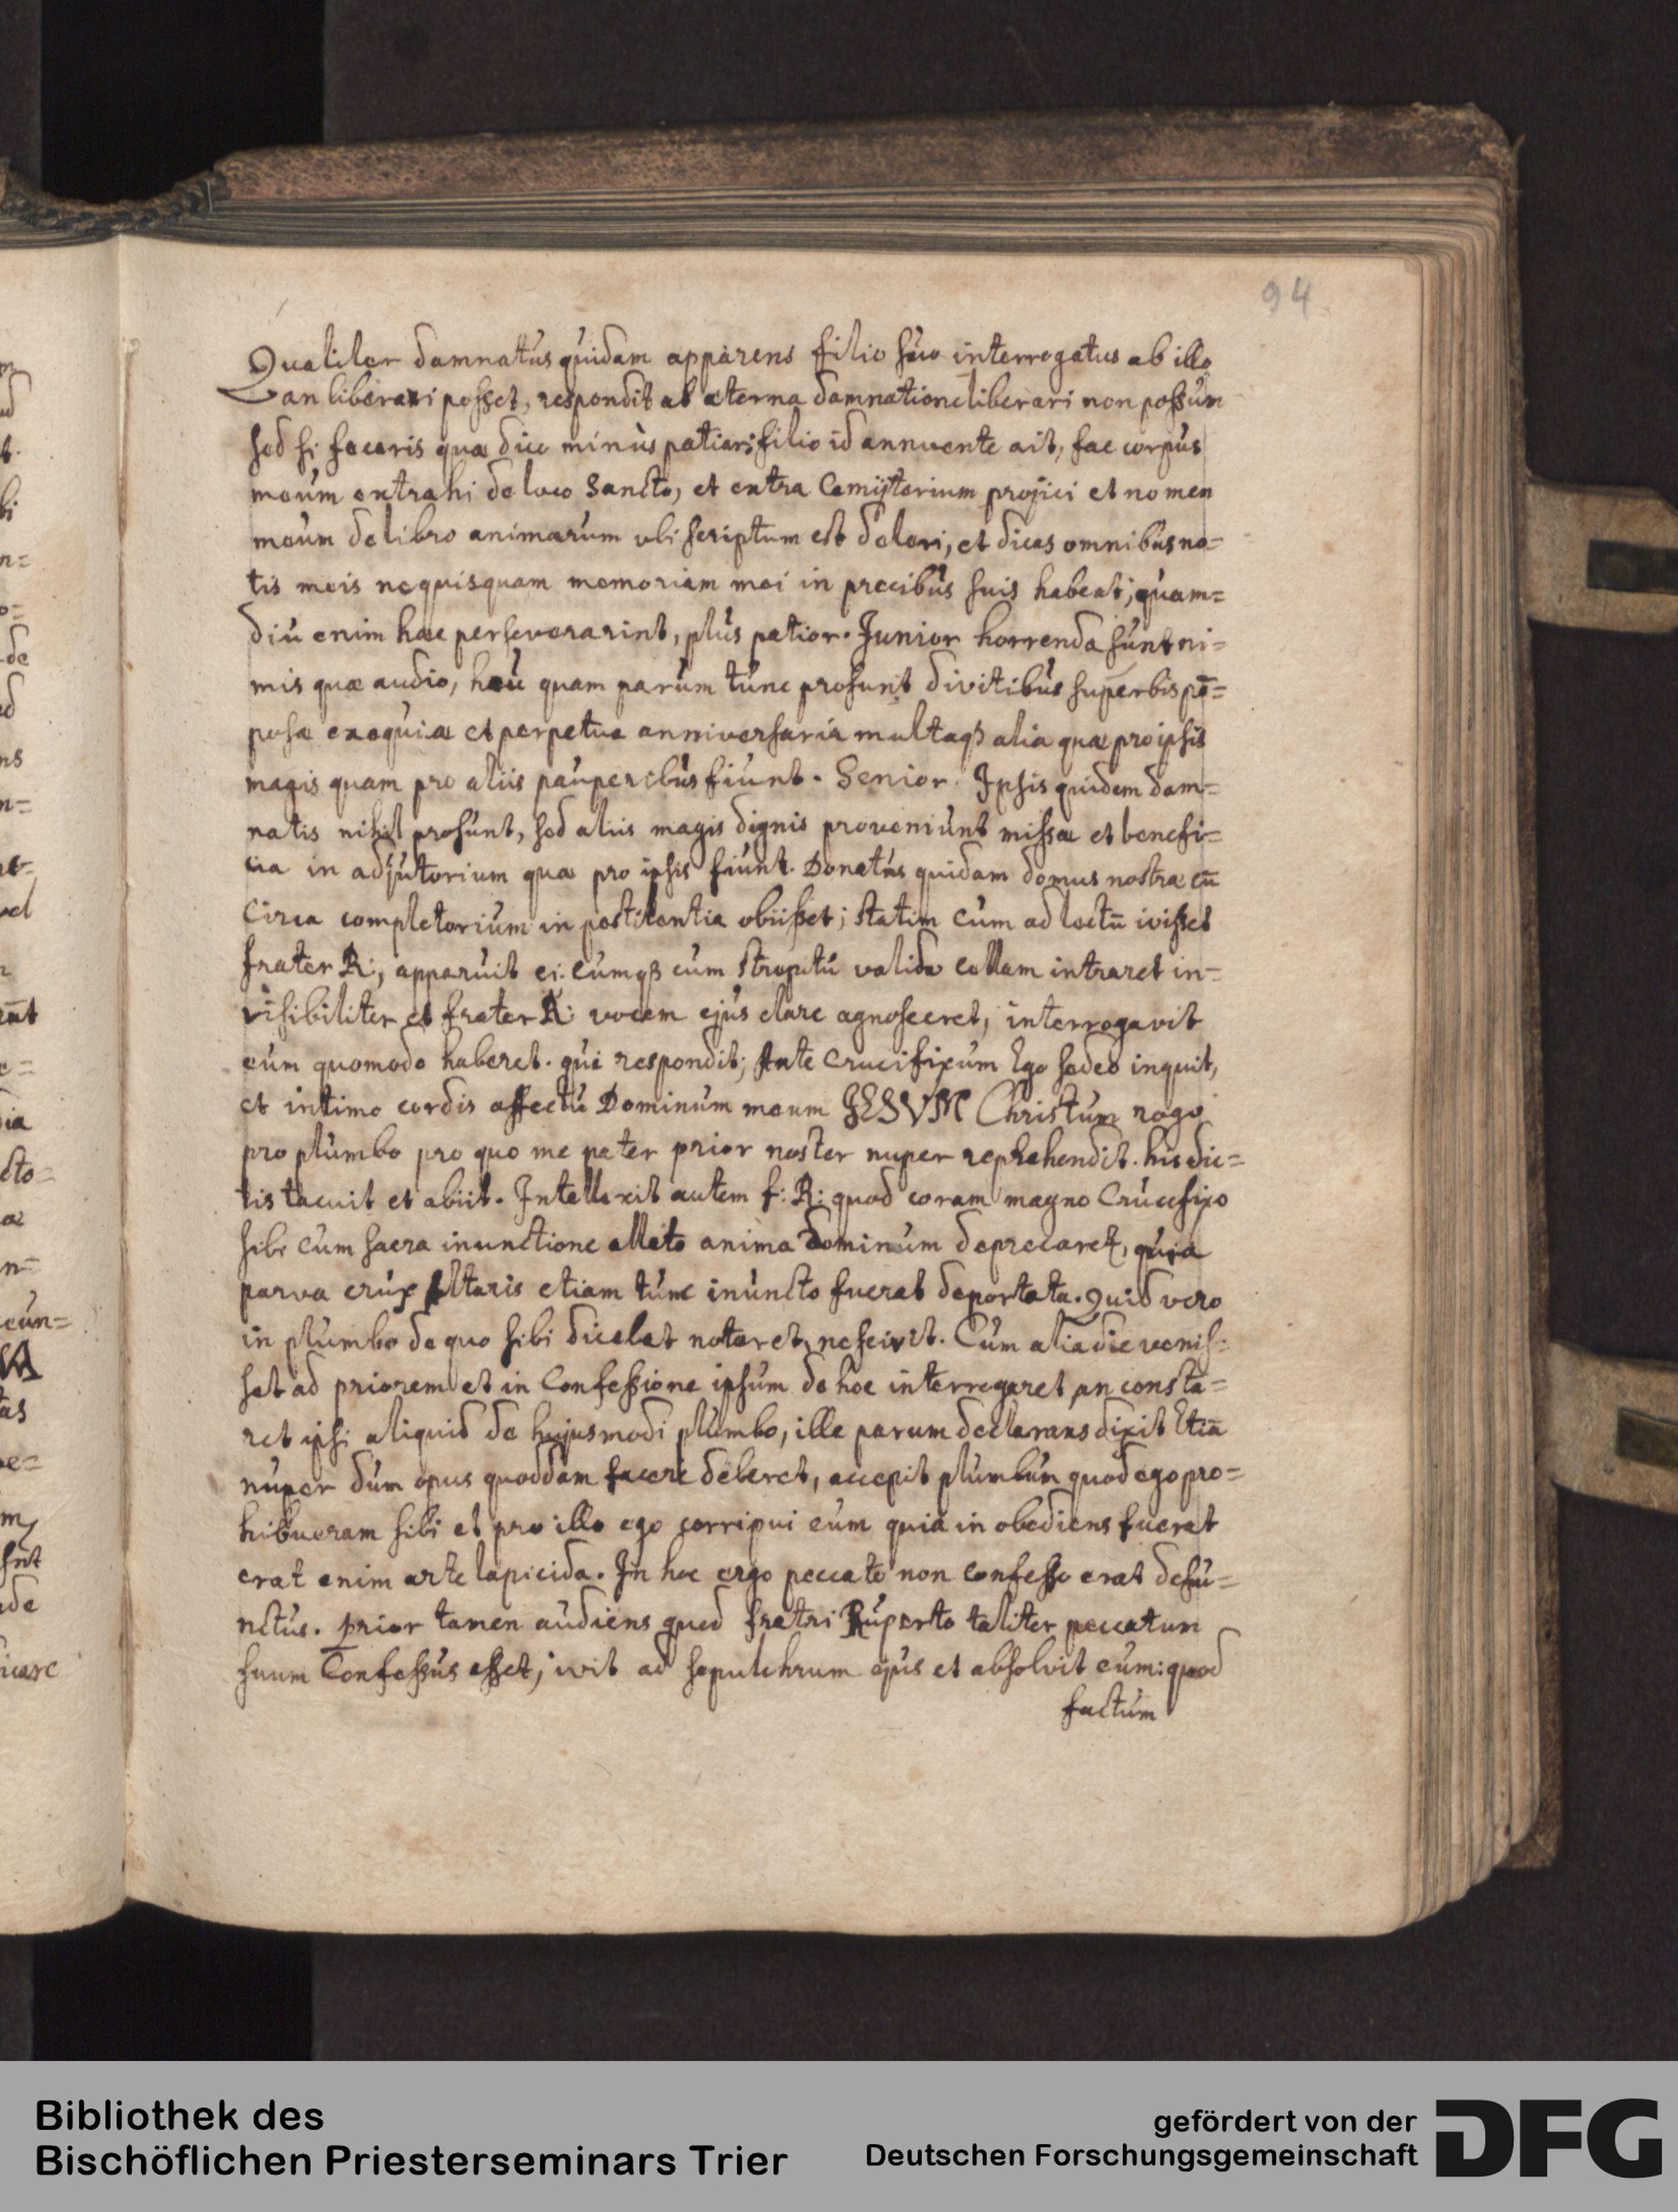 94
Qualiter damnatus quidam apparens filio suo interrogatus ab illo
an liberari posset, respondit ab æterna damnatione liberari non possum
sed si feceris quæ dico minùs patiar; filio id annuente ait, fac corpus
meum extrahi de loco Sancto, et extra Cemijterium projici et nomen
meum de libro animarum ubi scriptum est deleri, et dicas omnibus no=
tis meis ne quisquam memoriam mei in precibus suis habeat; quam=
diu enim hæc perseverarint, plus patior. Junior horrenda sunt ni=
mis quæ audio, heu quam parum tunc prosunt divitibus superbis pō=
posæ exequiæ et perpetua anniversaria multaqз alia quæ pro ipsis
magis quam pro aliis pauperibus fiunt. Senior. Ipsis quidem dam=
natis nihil prosunt, sed aliis magis dignis proveniunt missæ et benefi=
cia in adjutorium quæ pro ipsis fiunt. Donatus quidam domus nostræ cū
Circa completorium in pestilentia obiisset; statim cum ad lectū ivisset
frater R:, apparuit ei. Cumqз cum strepitu valido cellam intraret in=
visibiliter et frater R: vocem ejus clare agnosceret, interrogavit
eum quomodo haberet. qui respondit; Ante Crucifixum Ego sedeo inquit,
et intimo cordis affectu Dominum meum JESVM Christum rogo
pro plumbo pro quo me pater prior noster nuper reprehendit. his dic=
tis tacuit et abiit. Intellexit autem f: R: quod coram magno Crucifixo
sibi cum sacra inunctione allato anima dominum deprecaret, quia
parva crux Altaris etiam tunc inuncto fuerat deportata. Quid vero
in plumbo de quo sibi dicebat notaret, nescivit. Cum alia die venis=
set ad priorem et in Confessione ipsum de hoc interrogaret an consta=
ret ipsi aliquid de hujusmodi plumbo, ille parum declarans dixit Etiā
nuper dum opus quoddam facere deberet, accepit plumbum quod ego pro=
hibueram sibi et pro illo ego corripui eum quia in obediens fuerat
erat enim arte lapicida. In hoc ergo peccato non confesso erat defu=
nctus. prior tamen audiens quod fratri Ruperto taliter peccatum
suum Confessus esset, ivit ad sepulchrum ejus et absolvit eum: quod
factum
Bibliothek des
Bischöflichen Priesterseminars Trier
gefördert von der
Deutschen Forschungsgemeinschaft
DFG